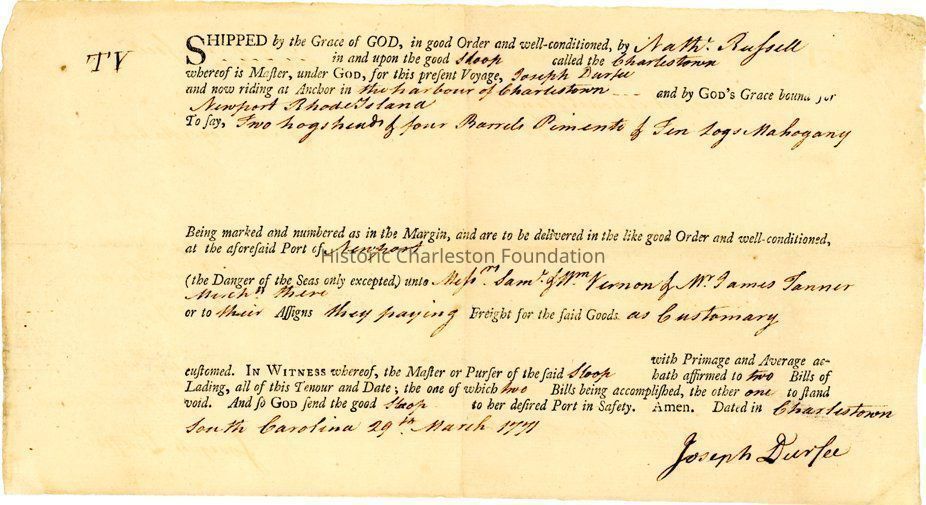 TV
SHIPPED by the Grace of GOD, in good Order and well-conditioned, by Nathl. Russell
in and upon the good Sloop called the Charlestown
whereof is Master, under GOD, for this present Voyage, Joseph Durfee
and now riding at Anchor in the harbour of Charlestown and by GOD's Grace bound for
Newport Rhode Island
To say, Two hogsheads & four Barrels Pimento & Ten Logs Mahogany
Being marked and numbered as in the Margin, and are to be delivered in the like good Order and well-conditioned,
at the aforesaid Port of Newport
Historic Charleston Foundation
(the Danger of the Seas only excepted,) unto Messrs Saml. & Wm Vernon & Mr James Tanner
Merchts there
or to their Assigns they paying Freight for the said Goods as Customary
with Primage and Average ac-
customed. IN WITNESS whereof, the Master or Purser of the said Sloop hath affirmed to two Bills of
Lading, all of this Tenour and Date; the one of which two Bills being accomplished, the other one to stand
void. And so GOD send the good Sloop to her desired Port in Safety. Amen. Dated in Charlestown
South Carolina 29th March 1777
Joseph Durfee